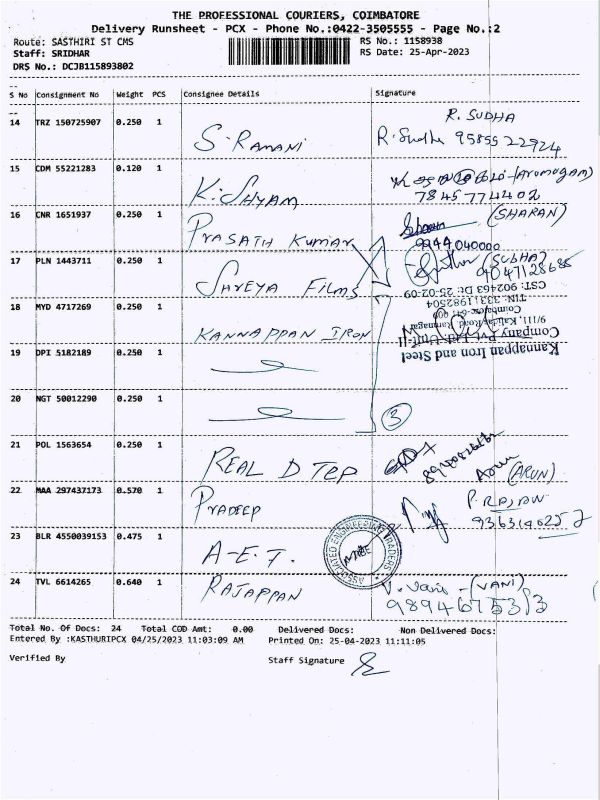 THE PROFESSIONAL COURIERS, COIMBATORE
Delivery Runsheet - PCX - Phone No.:0422-3505555 - Page No.:2
Route: SASTHIRI ST CMS RS No.: 1158938
Staff: SRIDHAR RS Date: 25-Apr-2023
DRS No.: DCJB115893802
S No Consignment No Weight PCS Consignee Details Signature
14 TRZ 150725907 0.250 1 S. RAMANI R. SUDHA
R. Sudha 95855 22924
15 CDM 55221283 0.120 1 K. SHYAM (Arumugam)
78457 74402
16 CNR 1651937 0.250 1 PRASATH KUMAR (SHARAN)
9944040000
17 PLN 1443711 0.250 1 SHREYA FILMS (SUBHA)
18 MYD 4717269 0.250 1 KANNAPPAN IRON
Kannappan Iron and Steel
Company Pvt Ltd. Unit-II
9/111, Kalidas Road, Ramnagar
Coimbatore-641 009
TIN: 33311982504
CST: 902463 Dt: 25-02-09
19 DPI 5182189 0.250 1
20 NGT 50012290 0.250 1 3
21 POL 1563654 0.250 1 REAL D TEP Arun (ARUN)
22 MAA 297437173 0.570 1 PRADEEP P. RAJAN
9363146252
23 BLR 4550039153 0.475 1 A-E.T.
ASSOCIATED ENGINEERING TRADERS
24 TVL 6614265 0.640 1 RAJAPPAN V. Vani - (VANI)
Total No. Of Docs: 24 Total COD Amt: 0.00 Delivered Docs: Non Delivered Docs:
Entered By :KASTHURIPCX 04/25/2023 11:03:09 AM Printed On: 25-04-2023 11:11:05
Verified By Staff Signature